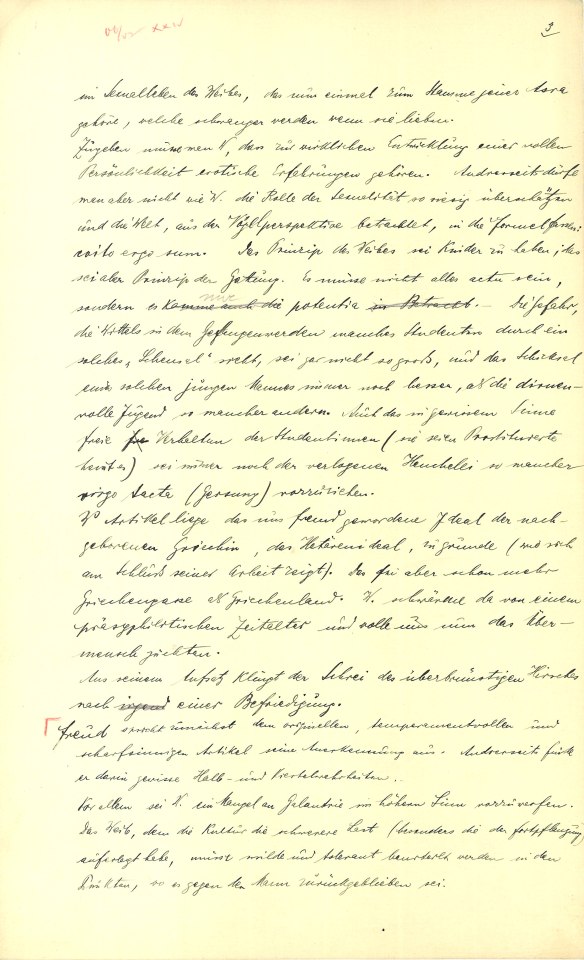 3
im Sexualleben des Weibes, das nun einmal zum Stamme jener Asra
gehöre, welche schwanger werden wenn sie lieben.
Zugeben müsse man W, dass zur wirklichen Entwicklung einer vollen
Persönlichkeit erotische Erfahrungen gehören. Andrerseits dürfe
man aber nicht wie W. die Rolle der Sexualität so riesig überschätzen
und die Welt, aus der Vogelperspektive betrachtet, in die Formel fassen:
coito ergo sum. Das Prinzip des Weibes sei Kinder zu haben; das
sei aber Prinzip der Gattung. Es müsse nicht alles actu sein,
sondern es komme auch die nur potentia in Betracht. – Die Gefahr,
die Wittels in dem Gefangenwerden manches Studenten durch ein
solches „Scheusel“ sieht, sei gar nicht so gross, und das Schicksal
eines solchen jungen Mannes immer noch besser, als die dirnen-
volle Jugend so mancher anderen. Auch das in gewissem Sinne
freie Verhalten der Studentinnen (sie seien Prostituierte
heisst es) sei immer noch der verlogenen Heuchelei so mancher
virgo tacta (Gersuny) vorzuziehen.
W's Artikel liege das uns fremd gewordene Ideal der nach-
geborenen Griechin, das Hetärenideal, zu grunde (wie sich
am Schluss seiner Arbeit zeigt). Das sei aber schon mehr
Griechengasse als Griechenland. W. schwärme da von einem
präsyphilitischen Zeitalter und wolle uns nun das Über-
mensch züchten.
Aus seinem Aufsatz klingt der Schrei des überbrünstigen Hirsches
nach irgend einer Befriedigung.
Freud spricht zunächst dem originellen, temperamentvollen und
scharfsinnigen Artikel seine Anerkennung aus. Andrerseits finde
er darin gewisse Halb- und Viertelwahrheiten.
Vor allem sei W. ein Mangel an Galantrie im höhern Sinn vorzuwerfen.
Das Weib, dem die Kultur die schwerere Last (besonders die der Fortpflanzung)
auferlegt habe, müsse milde und tolerant beurteilt werden in den
Punkten, wo es gegen den Mann zurückgeblieben sei.